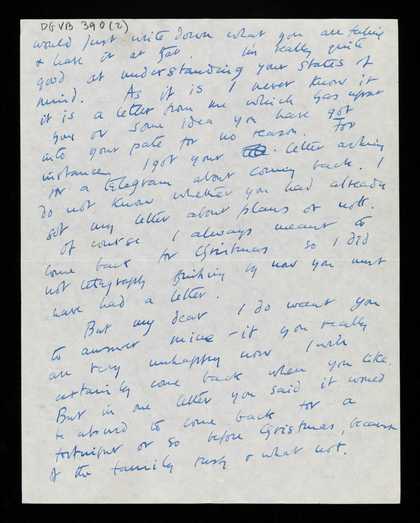 DGVB 390(2)
would just write down what you are feeling
& leave it at that. I'm really quite
good at understanding your states of
mind. As it is I never know if
it is a letter from me which has upset
you or some idea you have got
into your pate for no reason. For
instance, I got your letter asking
for a telegram about coming back. I
do not know whether you had already
got my letter about plans or not.
Of course I always meant to
come back for Christmas so I did
not telegraph thinking by now you must
have had a letter.
But my dear I do want you
to answer mine - if you really
are very unhappy now I will
certainly come back when you like
But in one letter you said it would
be absurd to come back for a
fortnight or so before Christmas, because
of the family rush & what not.